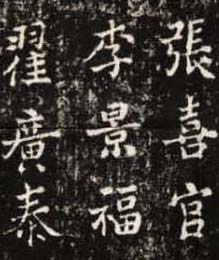 張喜官
李景福
翟廣泰